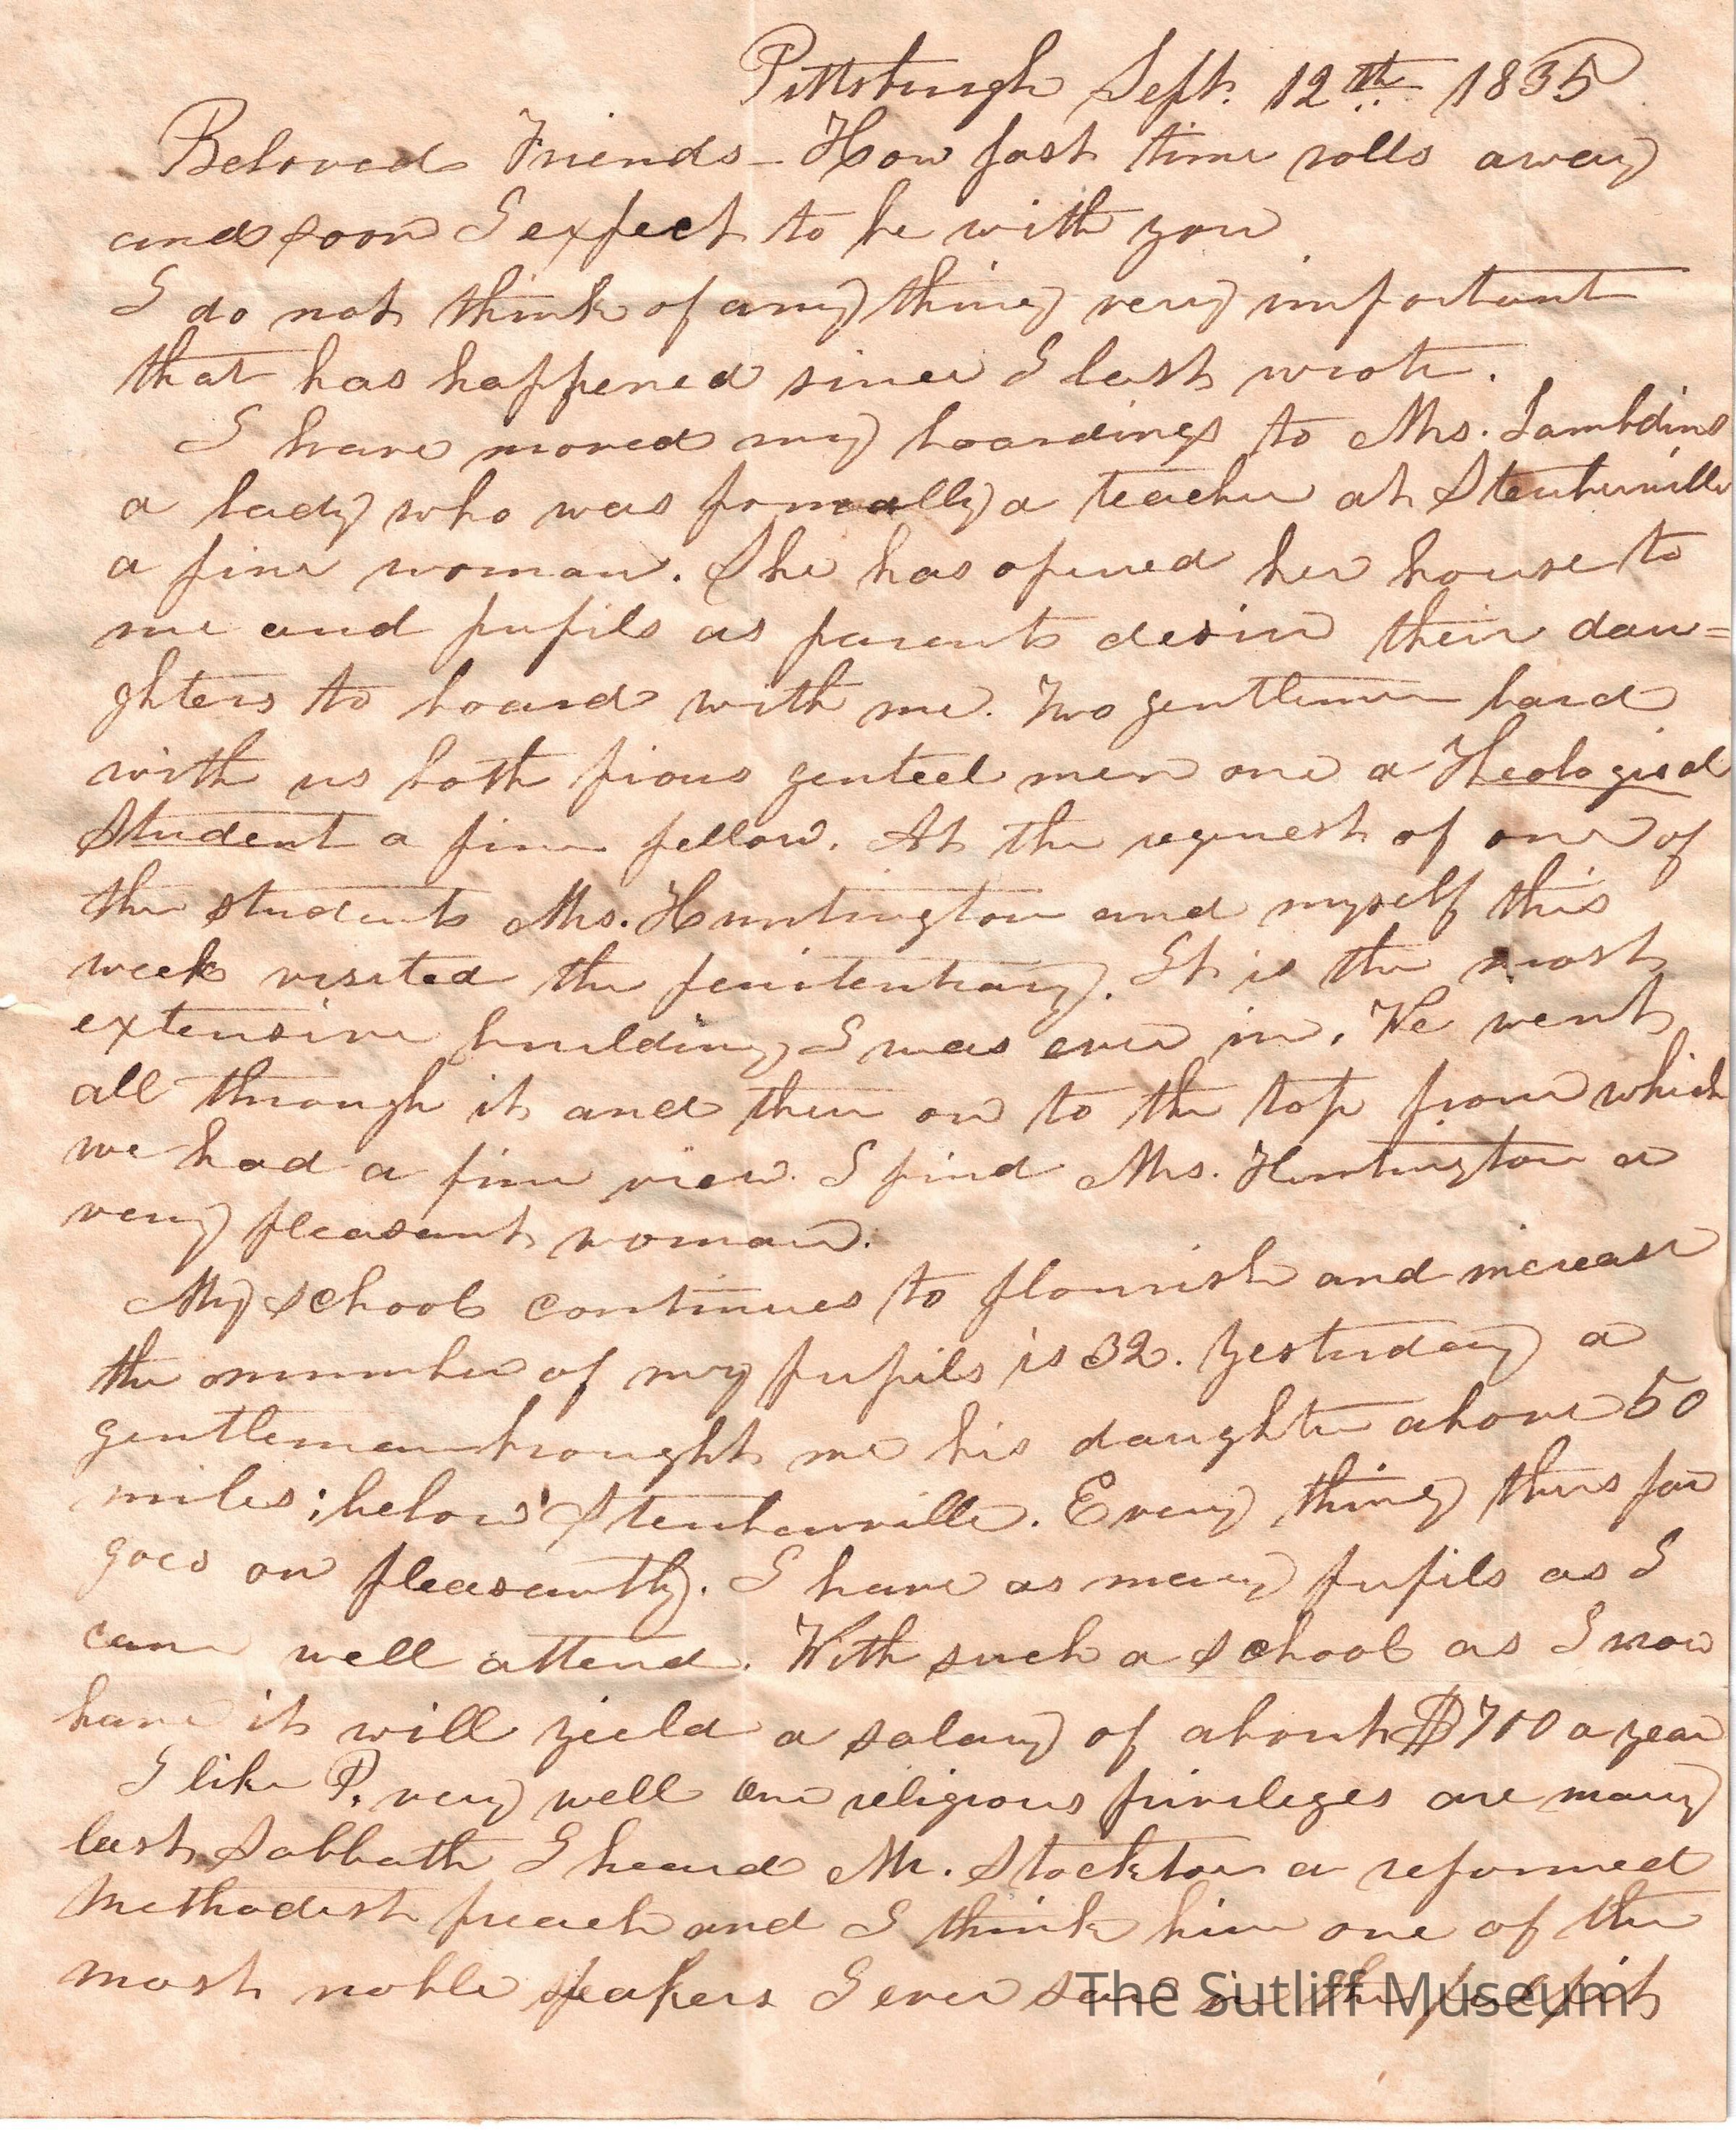 Pittsburgh Sept. 12th 1835
Beloved Friends - How fast time rolls away
and soon I expect to be with you
I do not think of any thing very important
that has happened since I last wrote.
I have moved my boardings to Mrs. Lambdins
a lady who was formally a teacher at Steubenville
a fine woman. She has opened her house to
me and pupils as parents desire their dau=
ghters to board with me. Two gentlemen board
with us both pious genteel men one a Theological
Student a fine fellow. At the request of one of
the students Mrs. Huntington and myself this
week visited the penitentiary. It is the most
extensive building I was ever in. We went
all through it and then on to the top from which
we had a fine view. I find Mrs. Huntington a
very pleasant woman.
My school continues to flourish and increase
the number of my pupils is 32. Yesterday a
gentleman brought me his daughter above 50
miles; below Steubenville. Every thing thus far
goes on pleasantly. I have as many pupils as I
can well attend. With such a school as I now
have it will yield a salary of about $700 a year
I like P. very well our religious privileges are many
last Sabbath I heard Mr. Stockton a reformed
Methodist preach and I think him one of the
most noble speakers I ever saw in the pulpit
The Sutliff Museum